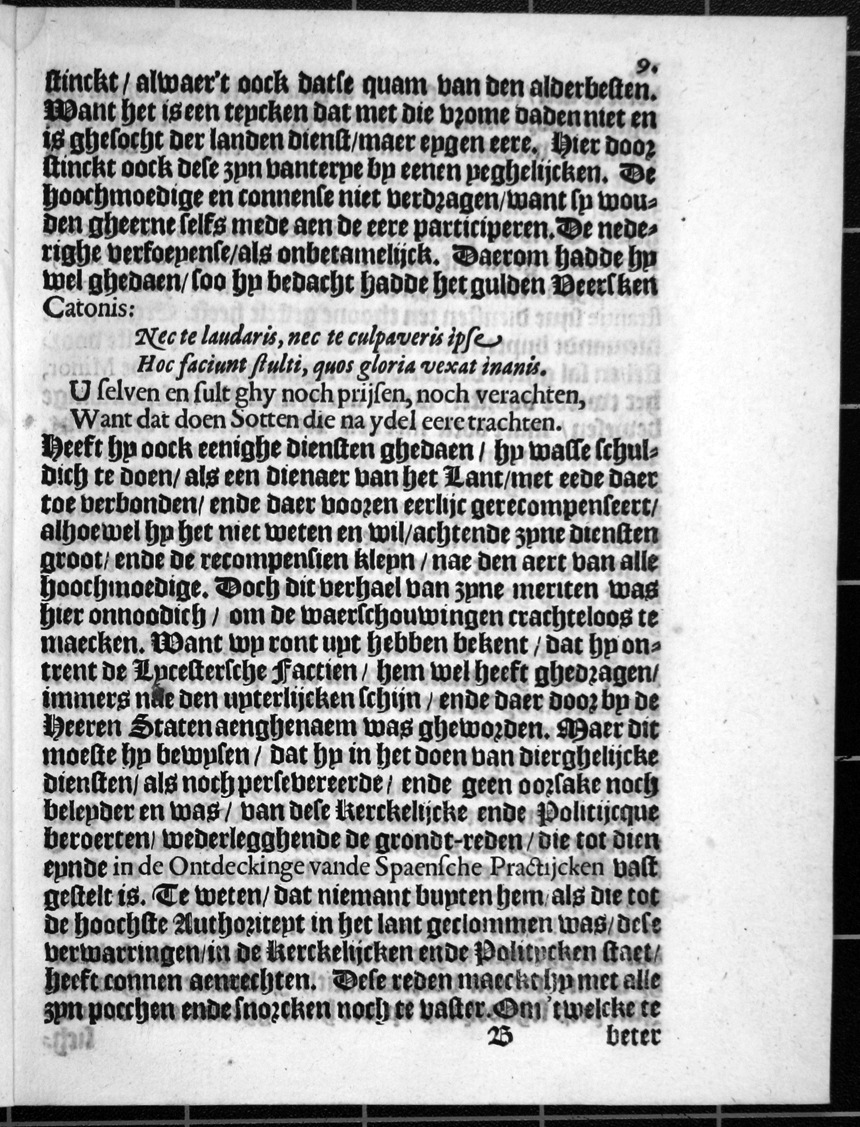 9.
stinckt / alwaer't oock datse quam van den alderbesten.
Want het is een teycken dat met die vrome daden niet en
is ghesocht der landen dienst/maer eygen eere. Hier door
stinckt oock dese zyn vanterye by eenen yeghelijcken. De
hoochmoedige en connense niet verdragen/want sy wou-
den gheerne selfs mede aen de eere participeren. De nede-
righe verfoeyense/als onbetamelijck. Daerom hadde hy
wel ghedaen/ soo hy bedacht hadde het gulden Veersken
Catonis:
Nec te laudaris, nec te culpaveris ipse
Hoc faciunt stulti, quos gloria vexat inanis.
U selven en sult ghy noch prijsen, noch verachten,
Want dat doen Sotten die na ydel eere trachten.
Heeft hy oock eenighe diensten ghedaen / hy wasse schul-
dich te doen/ als een dienaer van het Lant/met eede daer
toe verbonden/ ende daer vooren eerlijc gerecompenseert/
alhoewel hy het niet weten en wil/achtende zyne diensten
groot/ ende de recompensien kleyn / nae den aert van alle
hoochmoedige. Doch dit verhael van zyne meriten was
hier onnoodich / om de waerschouwingen crachteloos te
maecken. Want wy ront uyt hebben bekent / dat hy on-
trent de Lycestersche Factien / hem wel heeft ghedragen/
immers nae den uyterlijcken schijn / ende daer door by de
Heeren Staten aenghenaem was gheworden. Maer dit
moeste hy bewysen / dat hy in het doen van dierghelijcke
diensten/ als noch persevereerde / ende geen oorsake noch
beleyder en was / van dese Kerckelijcke ende Politijcque
beroerten/ wederlegghende de grondt-reden / die tot dien
eynde in de Ontdeckinge vande Spaensche Practijcken vast
gestelt is. Te weten/ dat niemant buyten hem/als die tot
de hoochste Authoriteyt in het lant geclommen was/dese
verwarringen/in de Kerckelijcken ende Politycken staet/
heeft connen aenrechten. Dese reden maeckt hy met alle
zyn pocchen ende snorcken noch te vaster. Om 'twelcke te
B beter